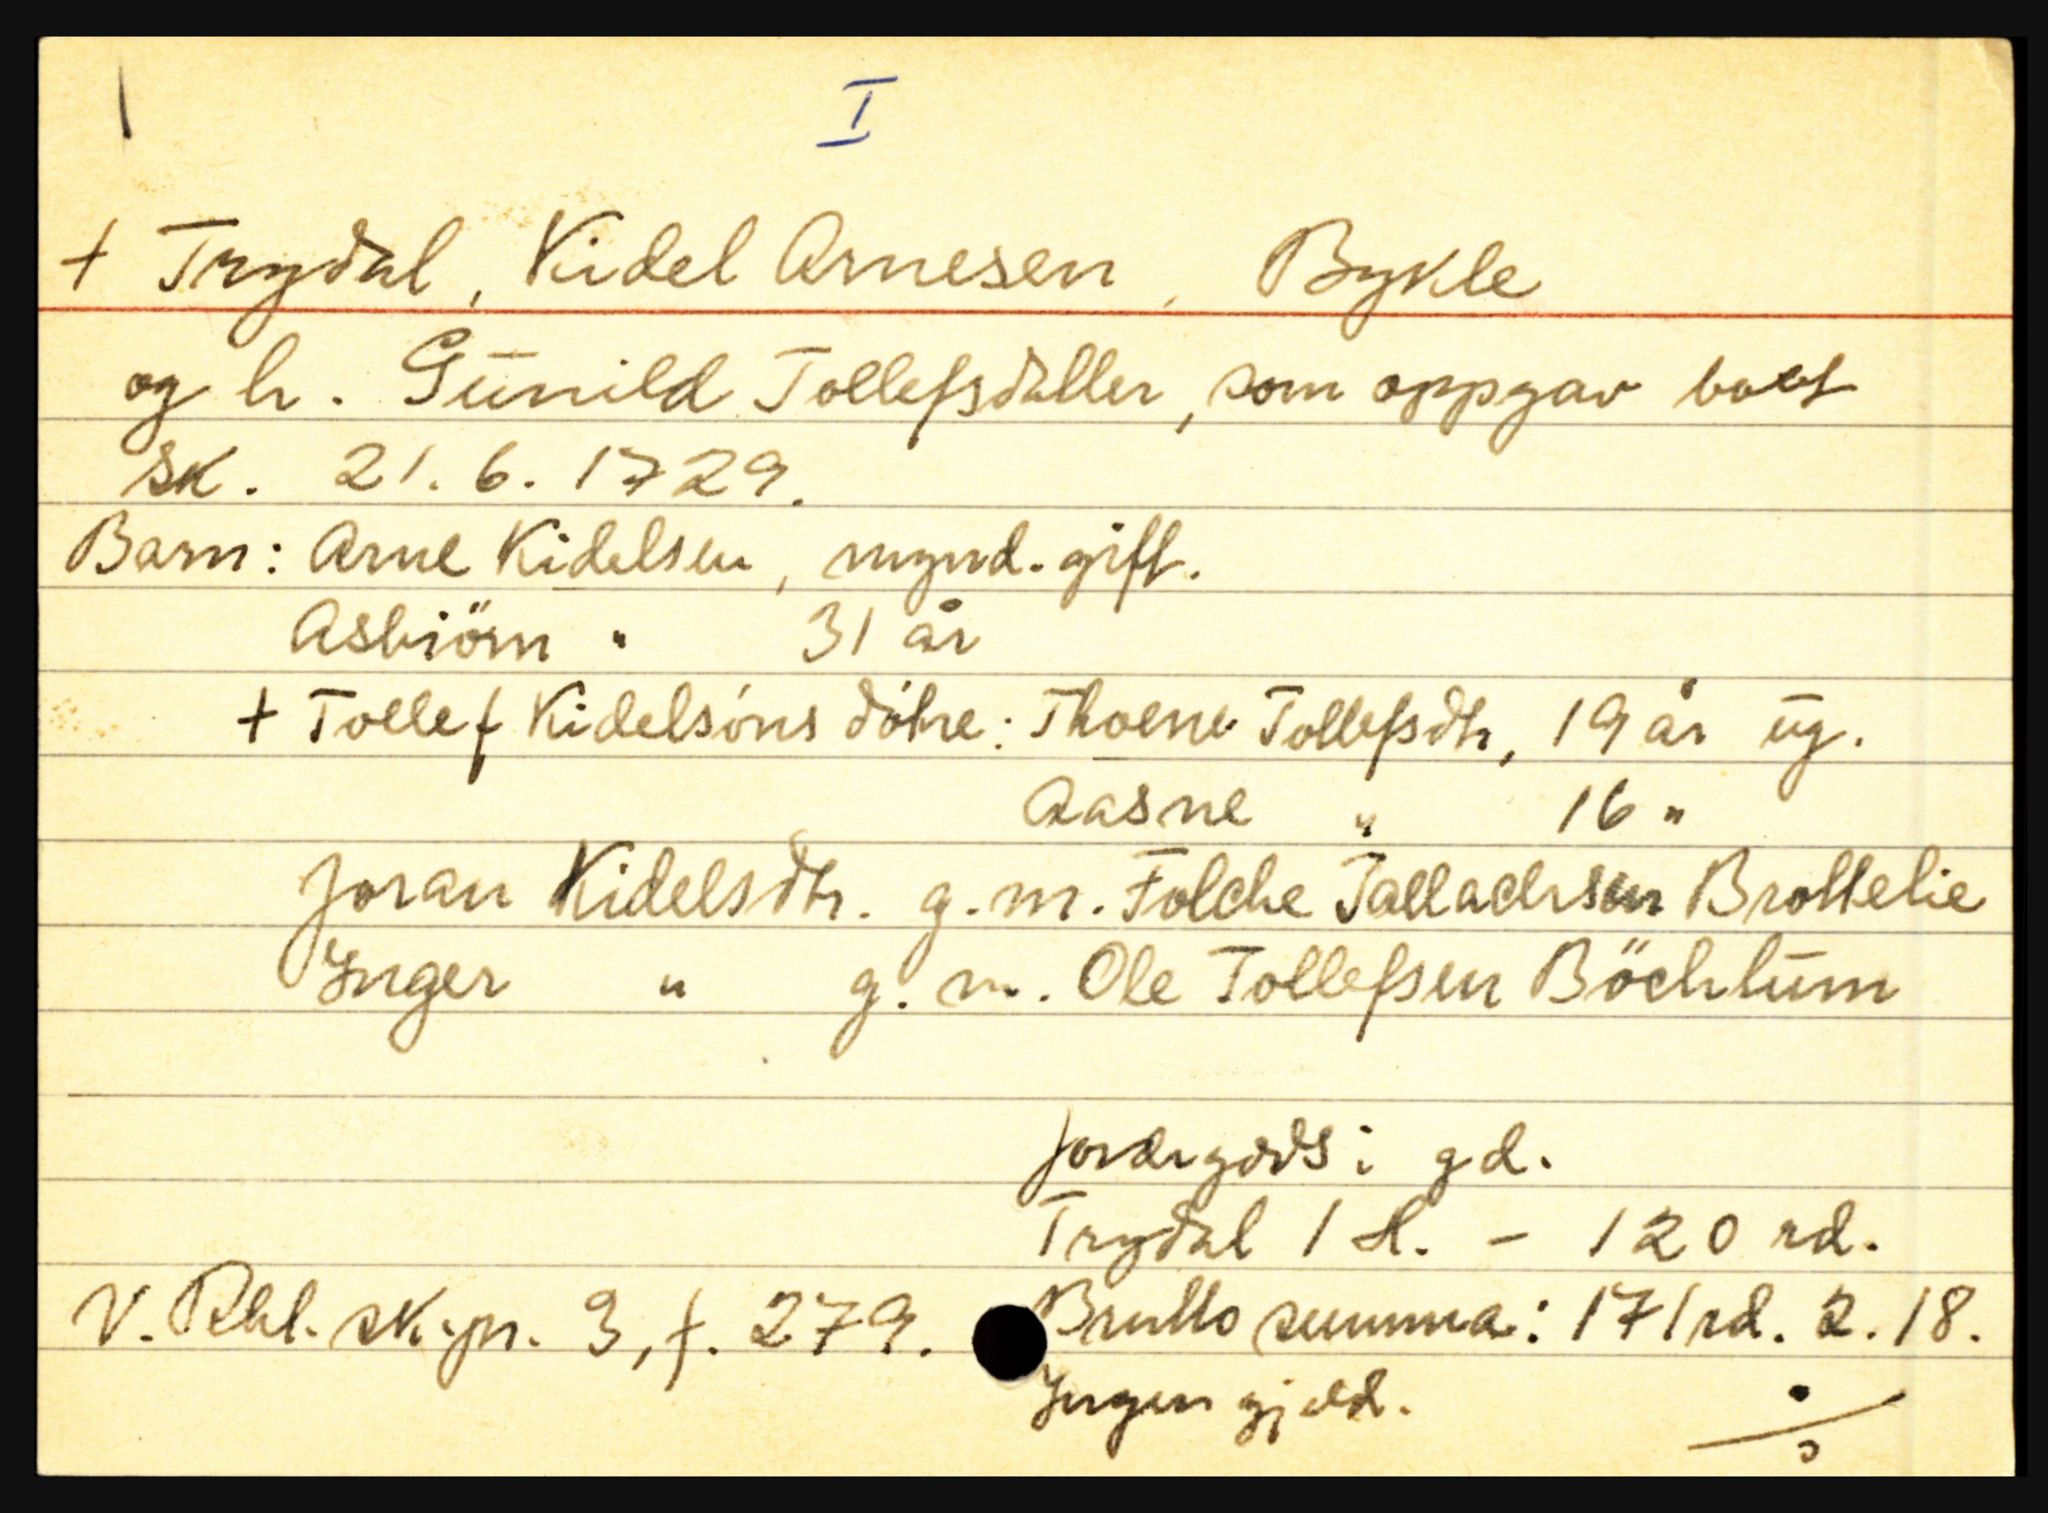 I
+ Trydal, Kidel Arnesen, Bykle
og h. Gūnild Tollefsdatter, som oppgav boet
sk. 21.6.1729.
Barn: Arne Kidelsen, mynd. gift.
Asbiörn " 31 år
+ Tollef Kidelsöns döhre: Thoene Tollefsdtr, 19 år ūg.
Aasne " 16 "
Joran Kidelsdtr. g.m. Folche Tallachsen Brottelie
Ynger " g.m. Ole Tollefsen Böchlūm
Jordegods i gd.
Trydal 1 H. - 120 rd.
V. Rbl. sk.pr. 3, f. 279. Brutto summa: 171 rd. 2. 18.
Yngen gjeld.